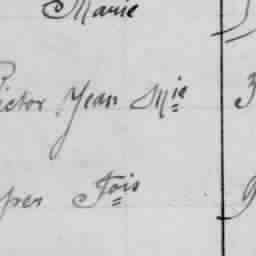 Marie
ictor Jean Mie 3
per Fois 9